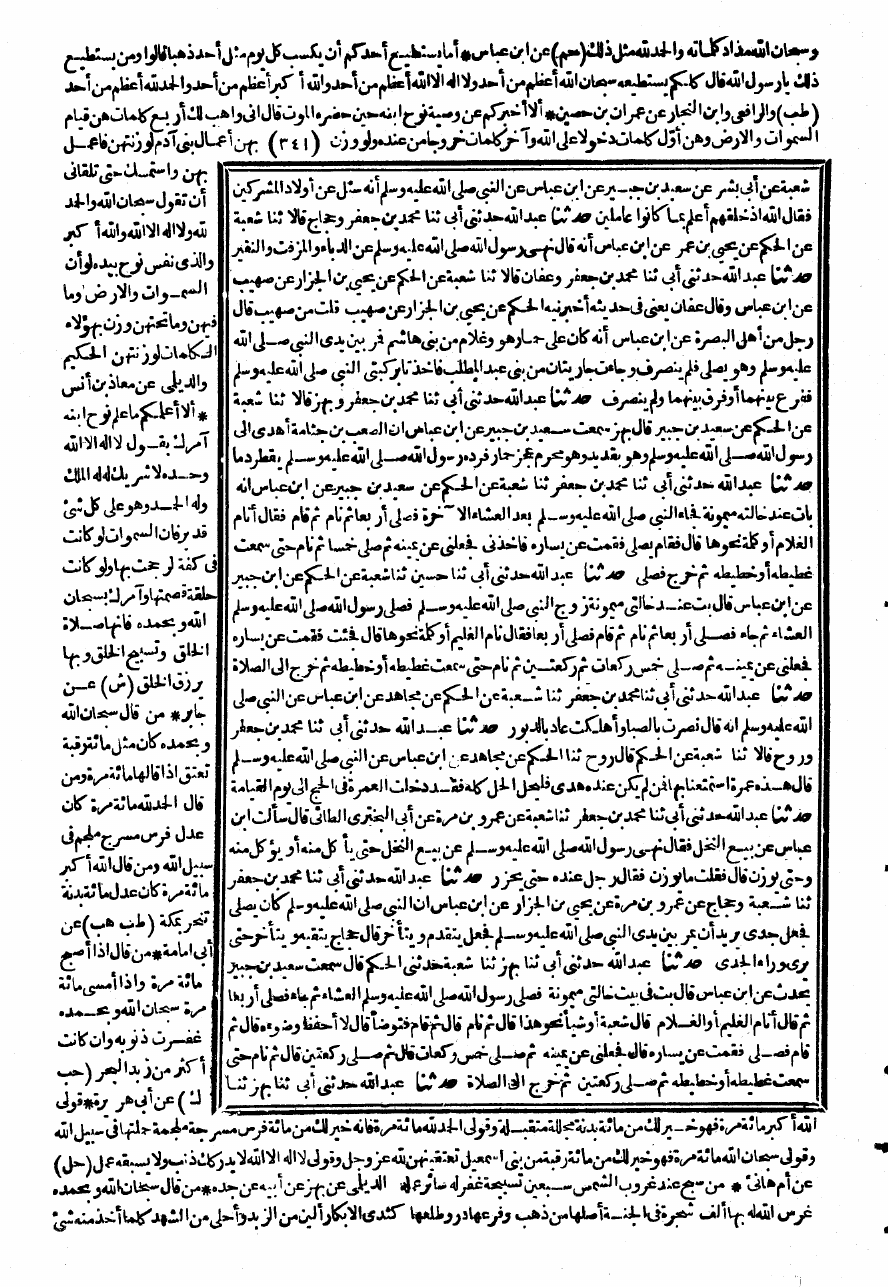 وسبحان الله مداد كلماته والحمد لله مثل ذلك (حم) عن ابن عباس * أما يستطيع أحدكم أن يكسب كل يوم مثل أحد ذهبا قالوا ومن يستطيع
ذلك يارسول الله قال كلكم يستطيعه سبحان الله أعظم من أحد ولا اله الا الله أعظم من أحد والله أكبر أعظم من أحد والحمد لله أعظم من أحد
(طب) والرافعى وابن النجار عن عمران بن حصين * ألا أخبركم عن وصية نوح ابنه حين حضره الموت قال انى واهب لك أربع كلمات هن قيام
السموات والارض وهن أول كلمات دخولا على الله وآخر كلمات خروجا من عنده ولو وزن (٣٤١) بهن أعمال بنى آدم لوزنتهن فاعمل
بهن واستمسك حتى تلقانى
أن تقول سبحان الله والحمد
لله ولا اله الا الله والله أكبر
والذى نفس نوح بيده لو أن
السموات والارض وما
فيهن وما تحتهن وزن بهؤلاء
الكلمات لوزنتهن الحكيم
والديلى عن معاذ بن أنس
* ألا أعلمكم ما علم نوح ابنه
آمرك بقول لا اله الا الله
وحده لا شريك له له الملك
وله الحمد وهو على كل شئ
قدير فان السموات لو كانت
فى كفة لرجحت بها ولو كانت
حلقة قصمتها وآمرك بسبحان
الله وبحمده فانها صلاة
الخلق وتسبيح الخلق وبها
يرزق الخلق (ش) عن
جابر * من قال سبحان الله
وبحمده كان مثل مائة رقبة
تعتق اذا قالها مائة مرة ومن
قال الحمد لله مائة مرة كان
عدل فرس مسرج ملجم فى
سبيل الله ومن قال الله أكبر
مائة مرة كان عدل مائة بدنة
تنحر بمكة (طب هب) عن
أبى امامة * من قال اذا أصبح
مائة مرة واذا أمسى مائة
مرة سبحان الله وبحمده
غفرت ذنوبه وان كانت
أكثر من زبد البحر (حب
ك) عن أبى هريرة * قولى
شعبة عن أبى بشر عن سعيد بن جبير عن ابن عباس عن النبى صلى الله عليه وسلم أنه سئل عن أولاد المشركين
فقال الله اذ خلقهم أعلم بما كانوا عاملين حدثنا عبد الله حدثنى أبى ثنا محمد بن جعفر وحجاج قالا ثنا شعبة
عن الحكم عن يحيى بن عمر عن ابن عباس أنه قال نهى رسول الله صلى الله عليه وسلم عن الدباء والمزفت والنقير
حدثنا عبد الله حدثنى أبى ثنا محمد بن جعفر وعفان قالا ثنا شعبة عن الحكم عن يحيى بن الجزار عن صهيب
عن ابن عباس وقال عفان يعنى فى حديثه أخبرنيه الحكم عن يحيى بن الجزار عن صهيب قلت من صهيب قال
رجل من أهل البصرة عن ابن عباس أنه كان على حمار هو وغلام من بنى هاشم فمر بين يدى النبى صلى الله
عليه وسلم وهو يصلى فلم ينصرف وجاءت جاريتان من بنى عبد المطلب فاخذتا بركبتى النبى صلى الله عليه وسلم
ففرع بينهما أو فرق بينهما ولم ينصرف حدثنا عبد الله حدثنى أبى ثنا محمد بن جعفر وبهز قالا ثنا شعبة
عن الحكم عن سعيد بن جبير قال بهز سمعت سعيد بن جبير عن ابن عباس ان الصعب بن جثامة أهدى الى
رسول الله صلى الله عليه وسلم وهو بقديد وهو محرم عجز حمار فرده رسول الله صلى الله عليه وسلم يقطر دما
حدثنا عبد الله حدثنى أبى ثنا محمد بن جعفر ثنا شعبة عن الحكم عن سعيد بن جبير عن ابن عباس انه
بات عند خالته ميمونة فجاء النبى صلى الله عليه وسلم بعد العشاء الآخرة فصلى أربعا ثم نام ثم قام فقال أنام
الغلام أو كلة نحوها قال فقام يصلى فقمت عن يساره فاخذنى فجعلنى عن يمينه ثم صلى خمسا ثم نام حتى سمعت
غطيطه أو خطيطه ثم خرج فصلى حدثنا عبد الله حدثنى أبى ثنا حسين ثنا شعبة عن الحكم عن ابن جبير
عن ابن عباس قال بت عند خالتى ميمونة زوج النبى صلى الله عليه وسلم فصلى رسول الله صلى الله عليه وسلم
العشاء ثم جاء فصلى أربعا ثم نام ثم قام فصلى أربعا فقال نام الغليم أو كلة نحوها قال فجئت فقمت عن يساره
فجعلنى عن يمينه ثم صلى خمس ركعات ثم ركعتين ثم نام حتى سمعت غطيطه أو خطيطه ثم خرج الى الصلاة
حدثنا عبد الله حدثنى أبى ثنا محمد بن جعفر ثنا شعبة عن الحكم عن مجاهد عن ابن عباس عن النبى صلى
الله عليه وسلم انه قال نصرت بالصبا وأهلكت عاد بالدبور حدثنا عبد الله حدثنى أبى ثنا محمد بن جعفر
وروح قالا ثنا شعبة عن الحكم قال روح ثنا الحكم عن مجاهد عن ابن عباس عن النبى صلى الله عليه وسلم
قال هذه عمرة استمتعنا بها فمن لم يكن عنده هدى فليحل الحل كله فقد دخلت العمرة فى الحج الى يوم القيامة
حدثنا عبد الله حدثنى أبى ثنا محمد بن جعفر ثنا شعبة عن عمرو بن مرة عن أبى البخترى الطائى قال سألت ابن
عباس عن بيع النخل فقال نهى رسول الله صلى الله عليه وسلم عن بيع النخل حتى يأكل منه أو يؤكل منه
وحتى يوزن قال فقلت ما يوزن فقال رجل عنده حتى يحزر حدثنا عبد الله حدثنى أبى ثنا محمد بن جعفر
ثنا شعبة وحجاج عن عمرو بن مرة عن يحيى بن الجزار عن ابن عباس ان النبى صلى الله عليه وسلم كان يصلى
فجعل جدى يريد أن يمر بين يدى النبى صلى الله عليه وسلم فجعل يتقدم ويتأخر قال حجاج يتقيه ويتأخر حتى
يرى وراء الجدى حدثنا عبد الله حدثنى أبى ثنا بهز ثنا شعبة حدثنى الحكم قال سمعت سعيد بن جبير
يحدث عن ابن عباس قال بت فى بيت خالتى ميمونة فصلى رسول الله صلى الله عليه وسلم العشاء ثم جاء فصلى أربعا
ثم قال أنام الغليم أو الغلام قال شعبة أو شيأ نحو هذا قال ثم نام قال ثم قام فتوضأ قال لا أحفظ وضوءه قال ثم
قام فصلى فقمت عن يساره قال فجعلنى عن يمينه ثم صلى خمس ركعات قال ثم صلى ركعتين قال ثم نام حتى
سمعت غطيطه أو خطيطه ثم صلى ركعتين ثم خرج الى الصلاة حدثنا عبد الله حدثنى أبى ثنا بهز ثنا
الله أكبر مائة مرة فهو خير لك من مائة بدنة مجللة متقبلة وقولى الحمد لله مائة مرة فانه خير لك من مائة فرس مسرجة ملجمة حملتها فى سبيل الله
وقولى سبحان الله مائة مرة فهو خير لك من مائة رقبة من بنى اسمعيل تعتقينهن لله عز وجل وقولى لا اله الا الله لا يدركك ذنب ولا يسبقه عمل (حل)
عن أم هانئ * من سبح عند غروب الشمس سبعين تسبيحة غفر له سائر عمله الديلى عن بهز عن أبيه عن جده * من قال سبحان الله وبحمده
غرس الله له بها ألف شجرة فى الجنة أصلها من ذهب وفرعها در وطلعها كثدى الابكار ألين من الزبد وأحلى من الشهد كلما أخذ منه شئ